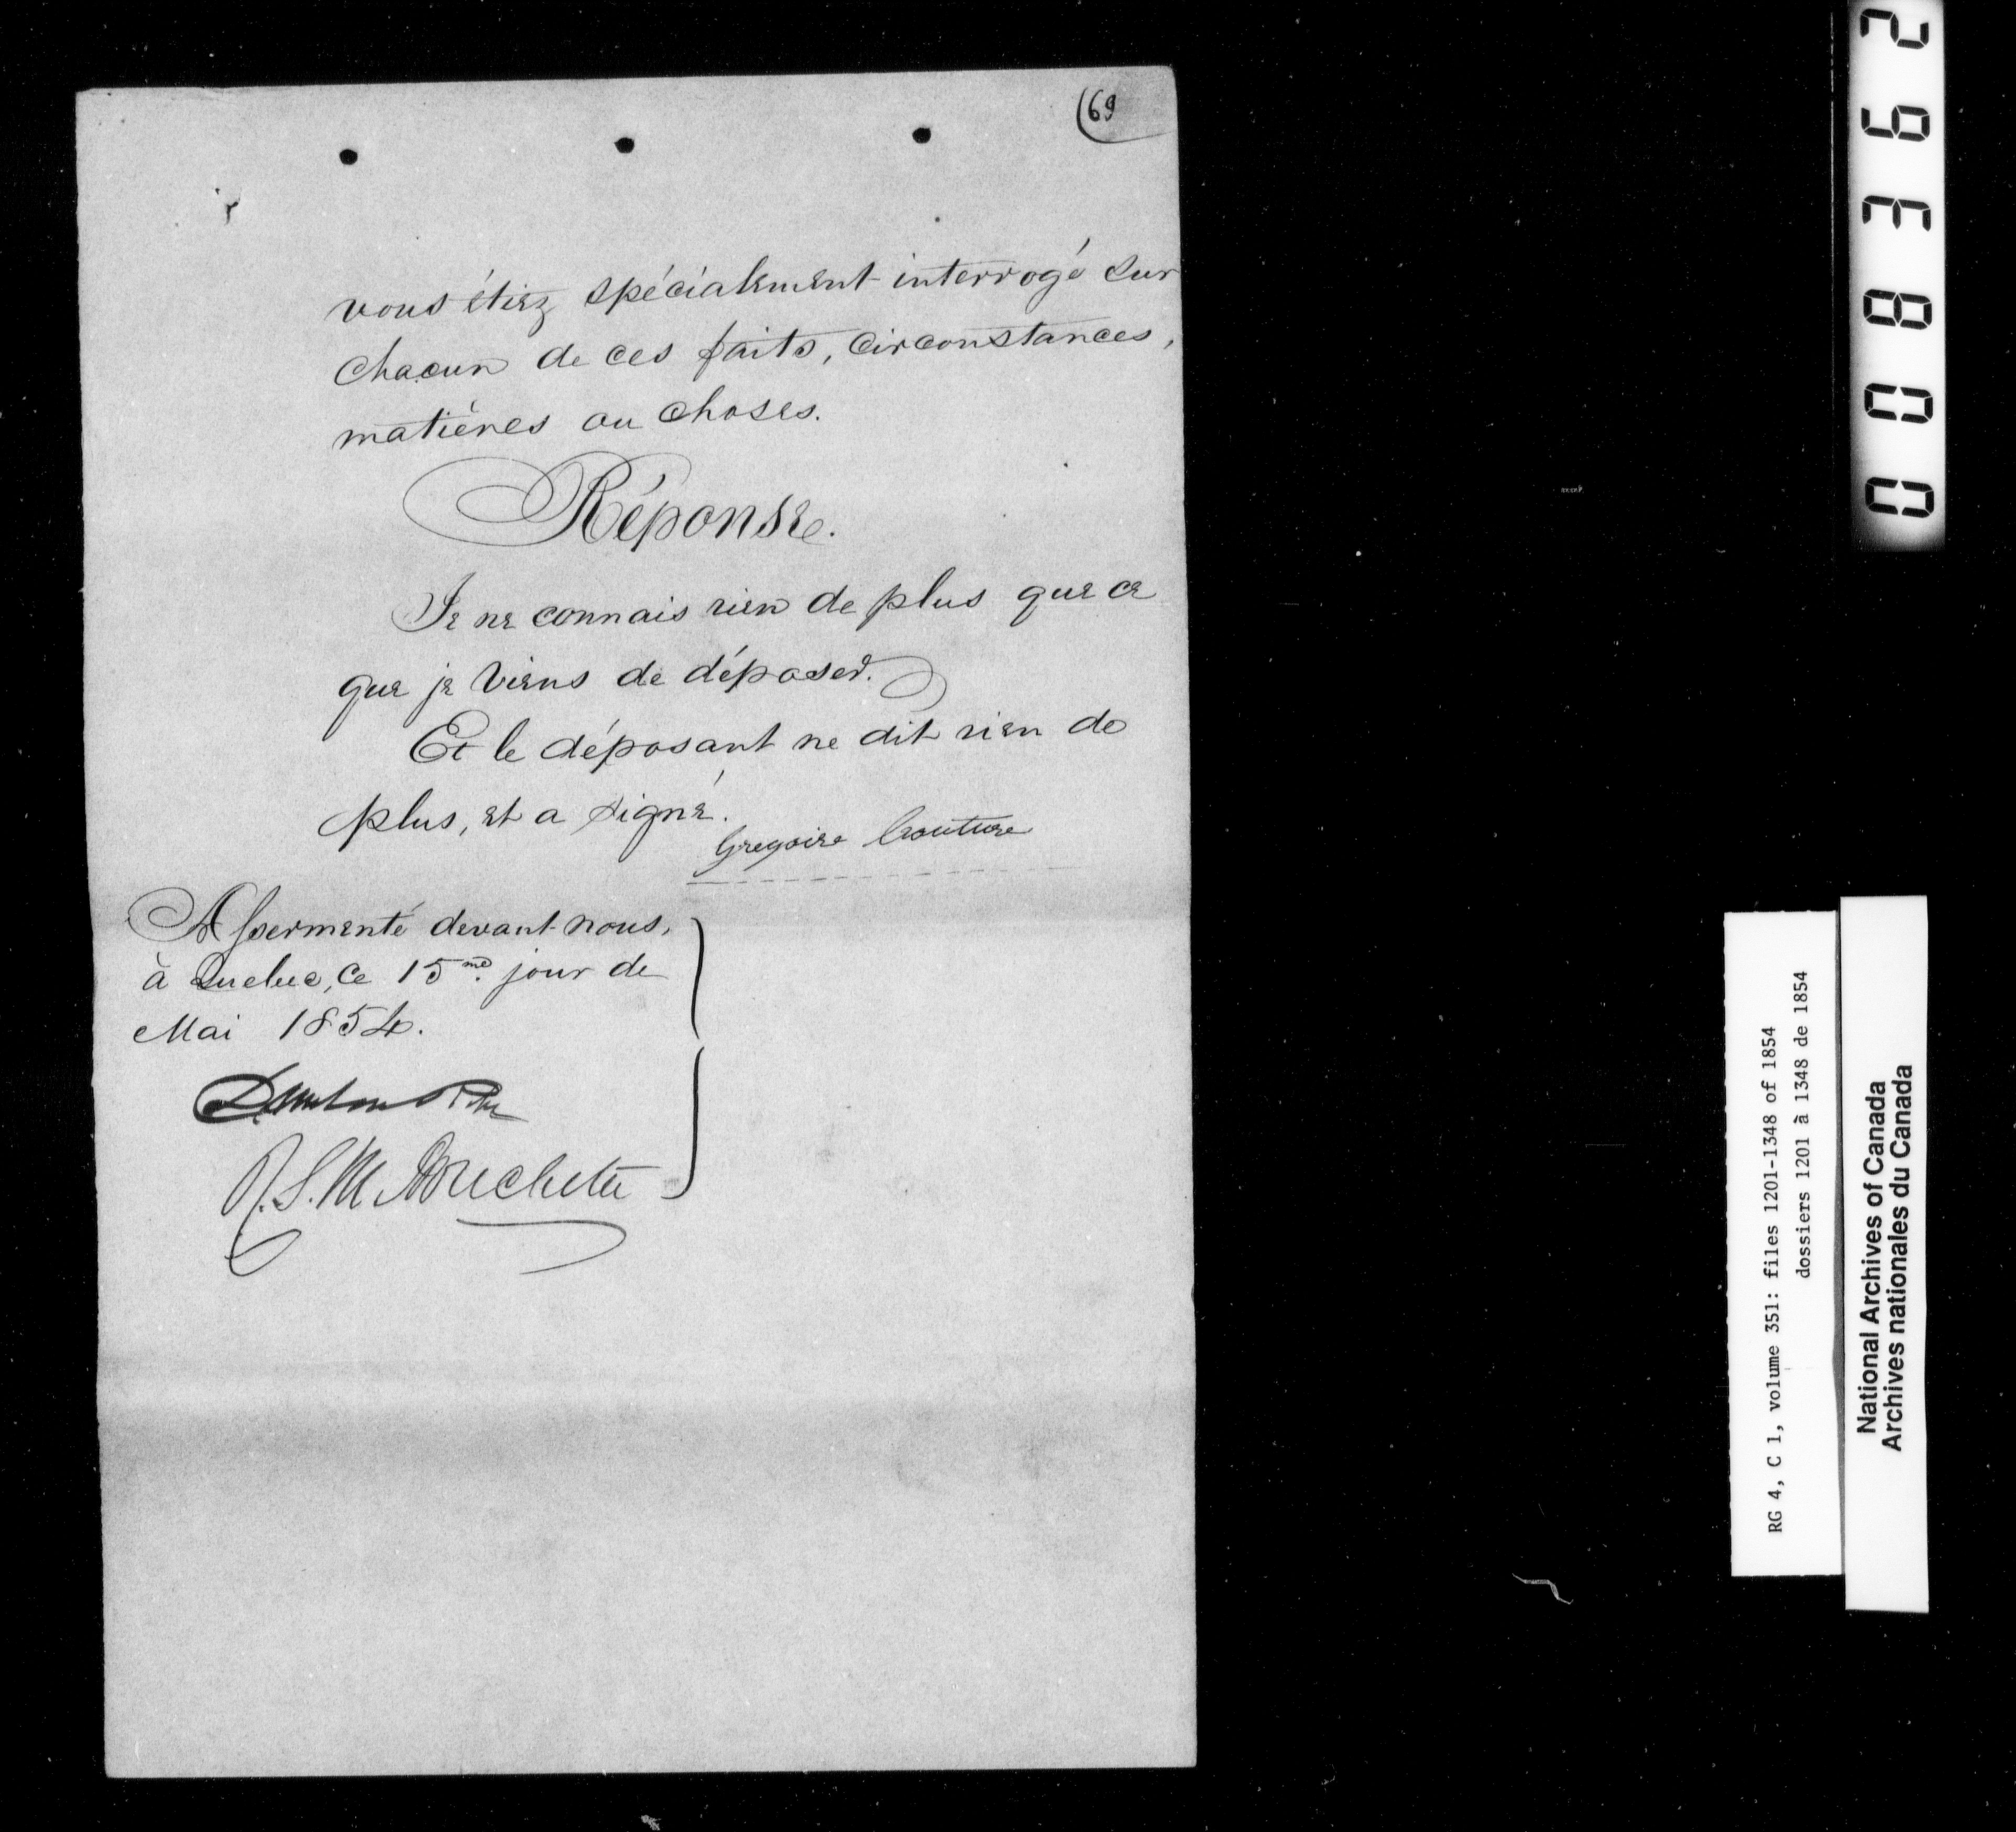 69
vous étiez spécialement interrogé sur
chacun de ces faits, circonstances,
matières ou choses.
Réponse.
Je ne connais rien de plus que ce
que je viens de déposer.
Et le déposant ne dit rien de
plus, et a signé.
Gregoire Couture
Assermenté devant nous,
à Quebec, ce 15me. jour de
Mai 1854.
R. S. M. Bouchette
008362
RG 4, C 1, volume 351: files 1201-1348 of 1854
dossiers 1201 à 1348 de 1854
National Archives of Canada
Archives nationales du Canada